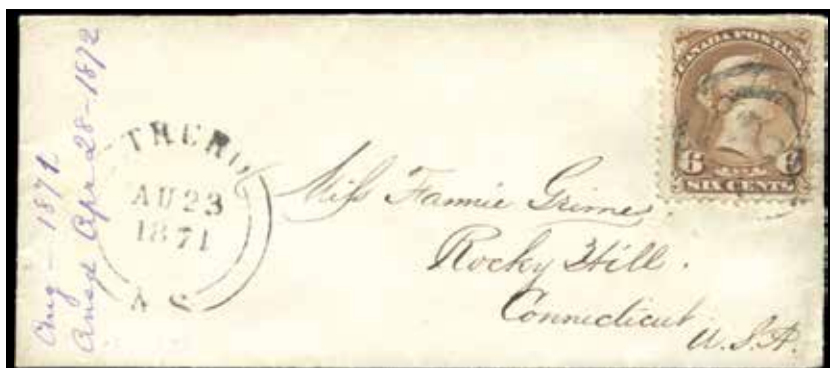 Aug - 1871
Ansd Apr 28 - 1872
TRURO
AU 23
1871
N S
CANADA POSTAGE
6 6
SIX CENTS
Miss Fannie Grimes
Rocky Hill.
Connecticut
U.S.A.